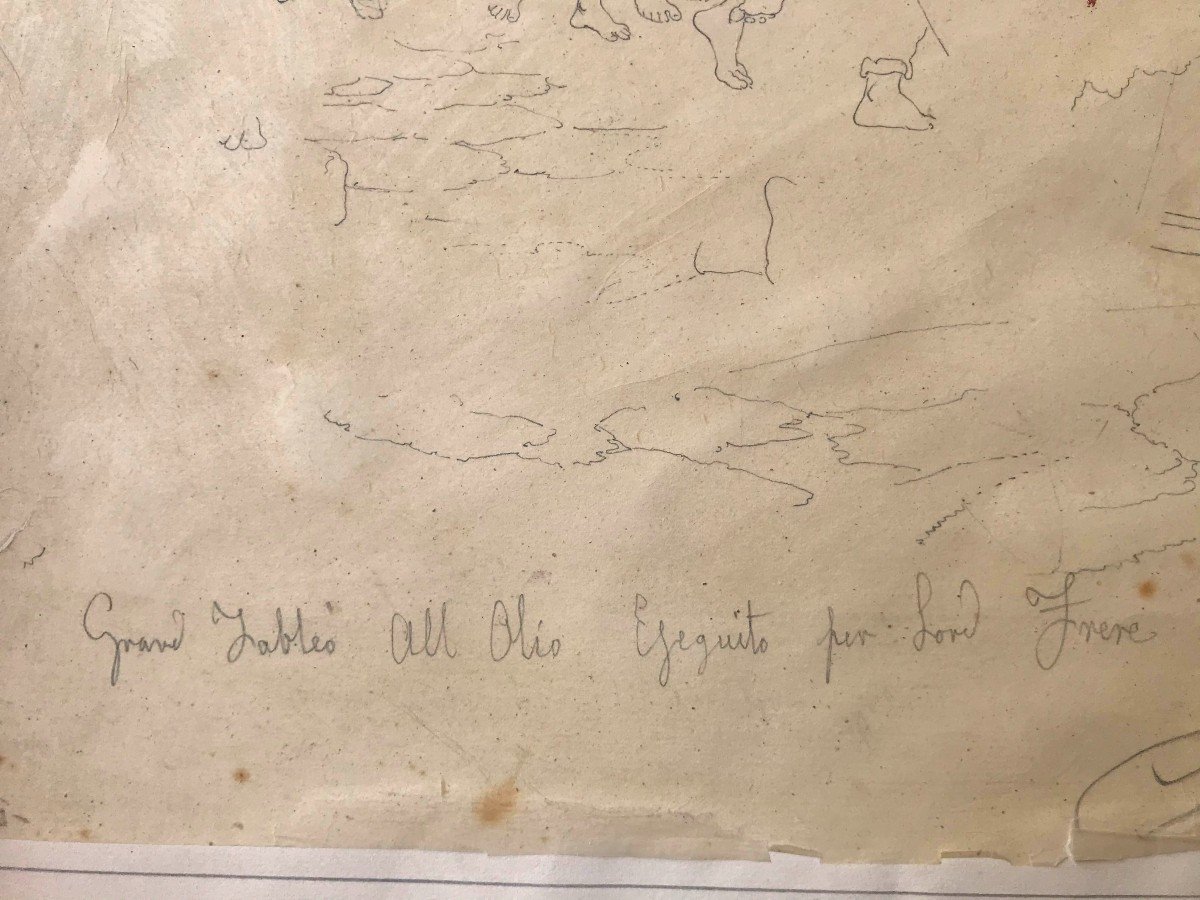 Grand Tableò All Olio Eseguito per Lord Frere